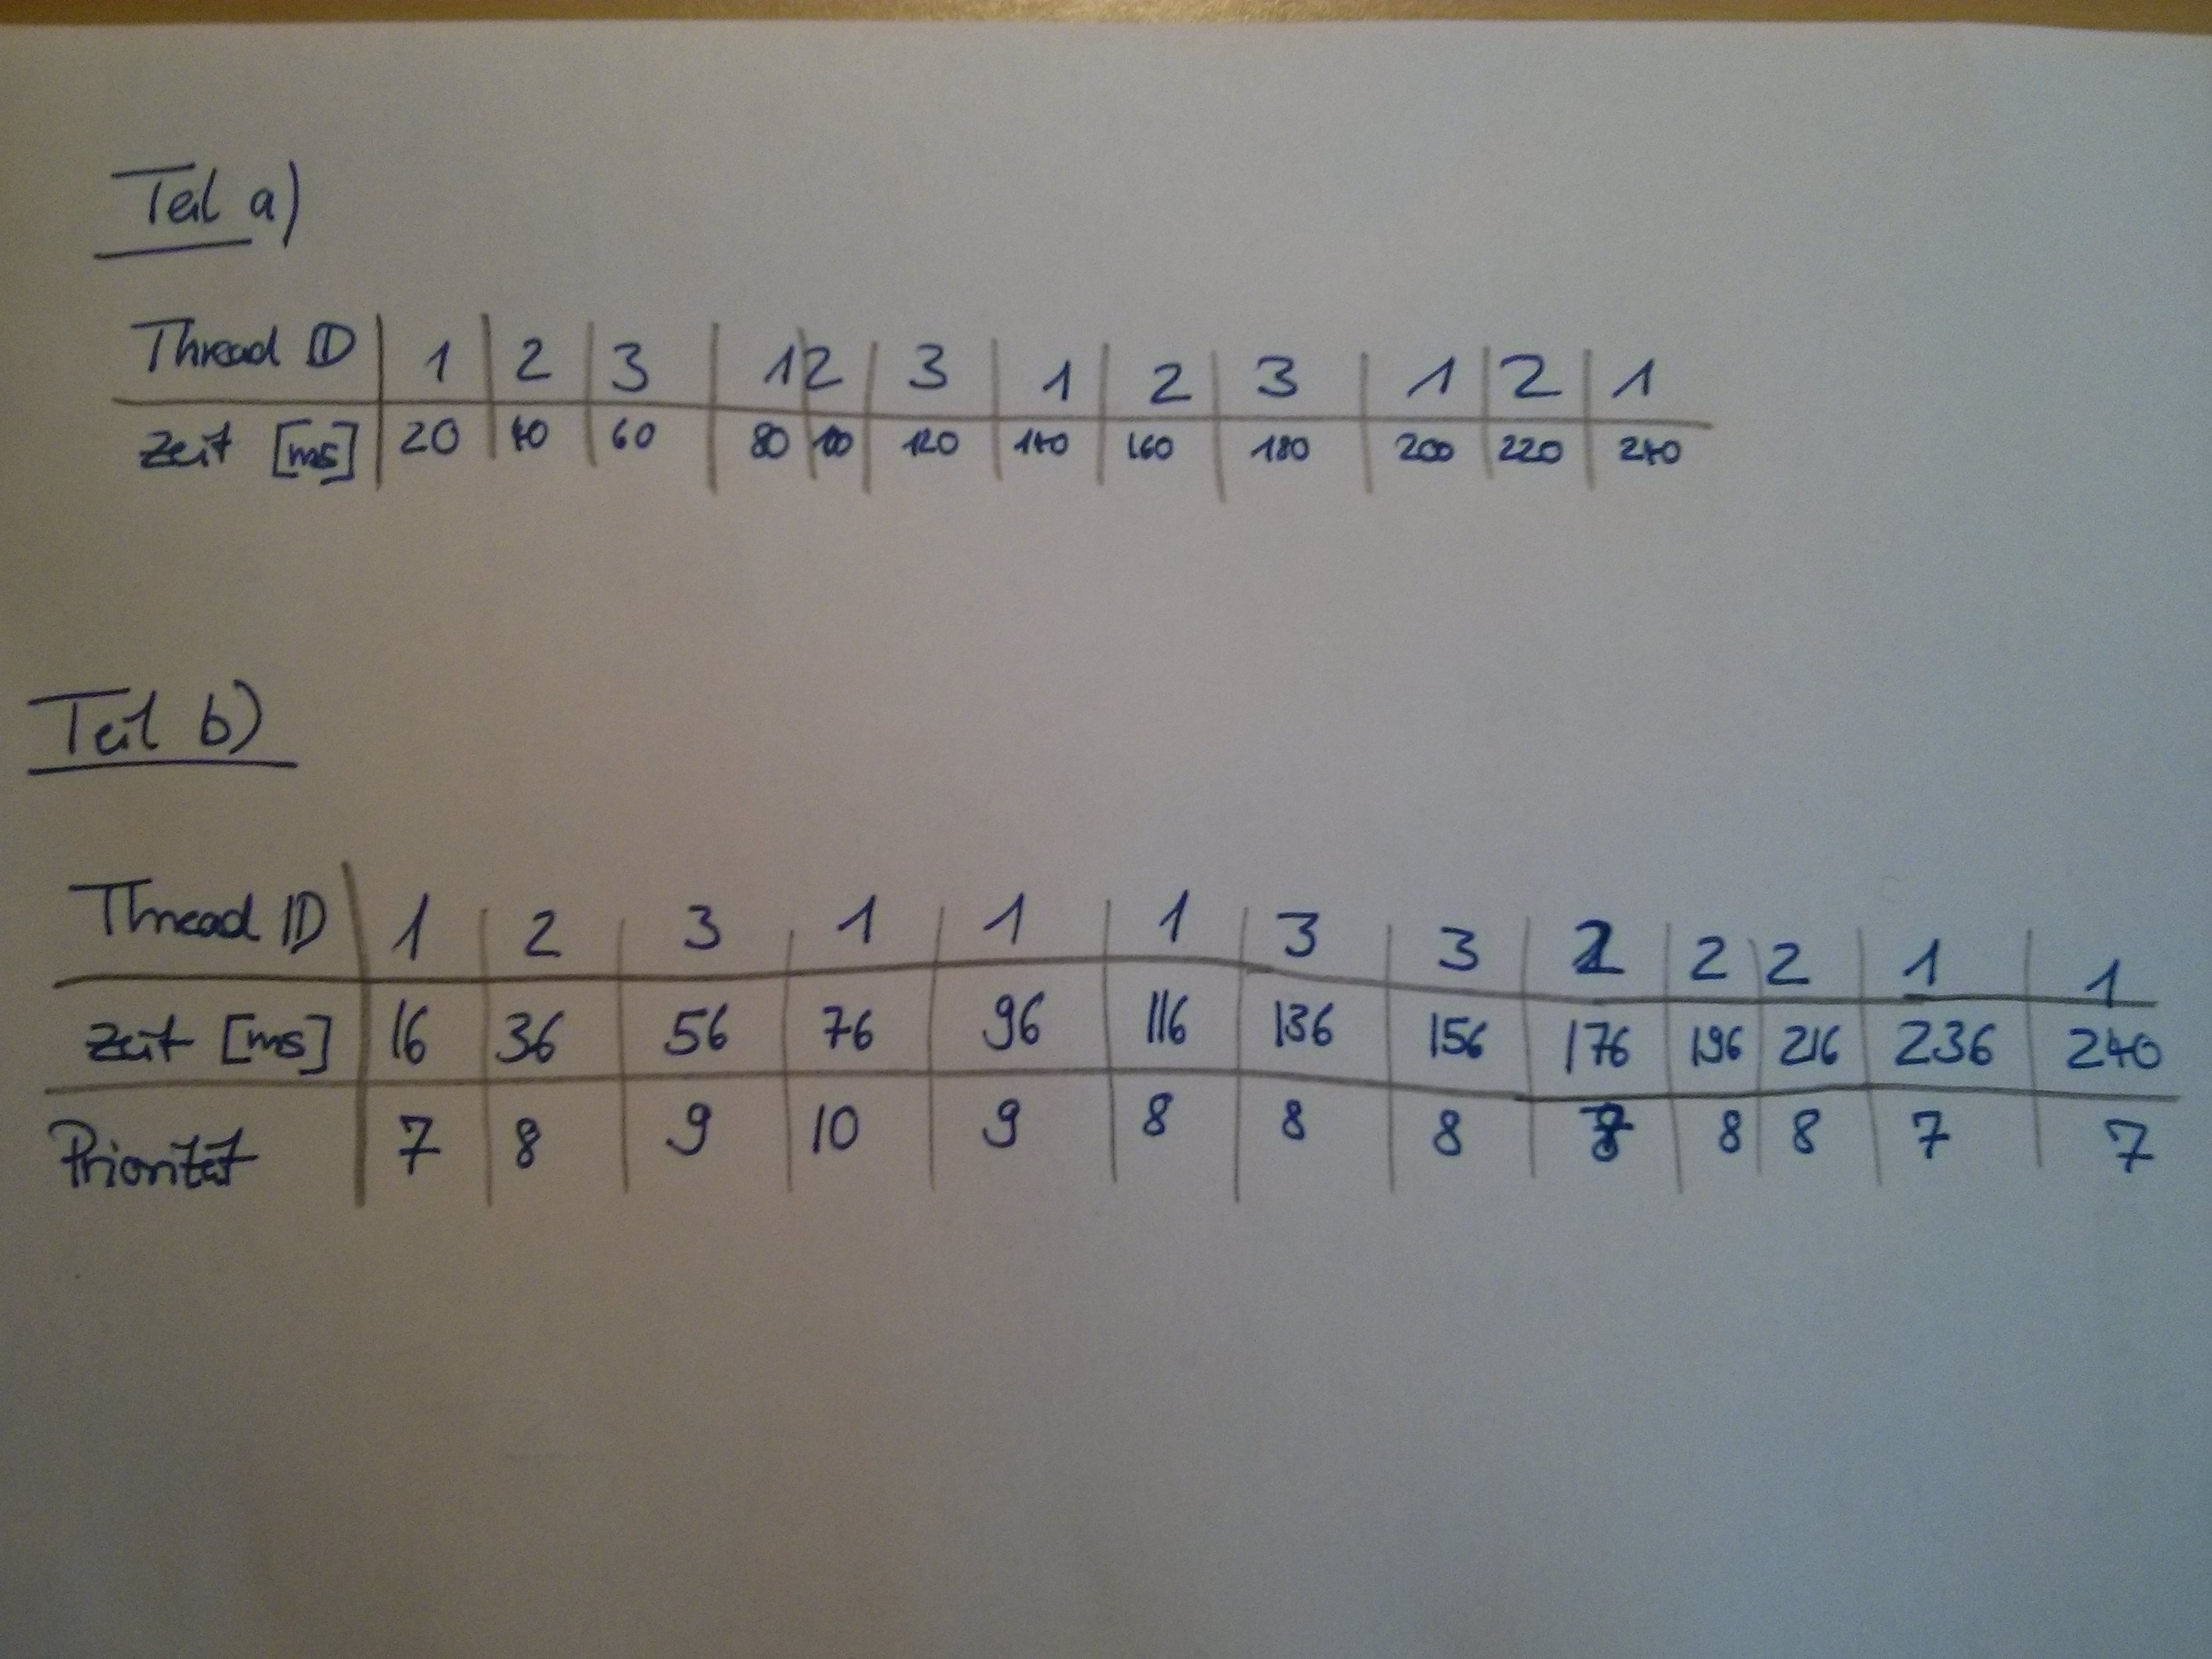 Teil a)
Thread ID 1 2 3 1 2 3 1 2 3 1 2 1
Zeit [ms] 20 40 60 80 100 120 140 160 180 200 220 240
Teil b)
Thread ID 1 2 3 1 1 1 3 3 2 2 2 1 1
Zeit [ms] 16 36 56 76 96 116 136 156 176 196 216 236 240
Priorität 7 8 9 10 9 8 8 8 8 8 7 7